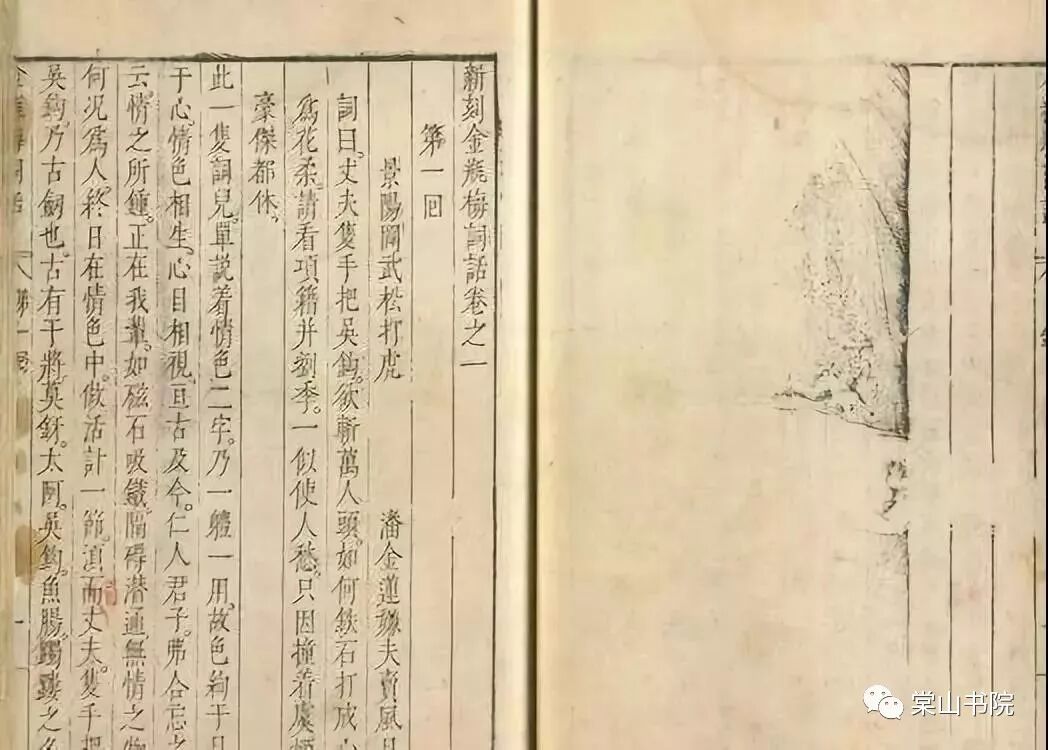 新刻金瓶梅詞話卷之一
第一囬
景陽岡武松打虎　潘金蓮嫌夫賣風月
詞曰。丈夫隻手把吳鈎。欲斬萬人頭。如何鉄石打成心
爲花柔。請看項籍并劉季。一似使人愁。只因撞着虞姬
豪傑都休。
此一隻詞兒。單說着情色二字。乃一體一用。故色絢于目
于心。情色相生。心目相視。亘古及今。仁人君子。弗合忘之
云。情之所鍾。正在我輩。如磁石吸鐵。隔碍潜通。無情之物
何况爲人。終日在情色中。做活計一節。湏而丈夫。隻手把
吳鈎。乃古劒也。古有干將。莫釾。太阿。吳鈎。魚腸。躅鏤之名
棠山书院